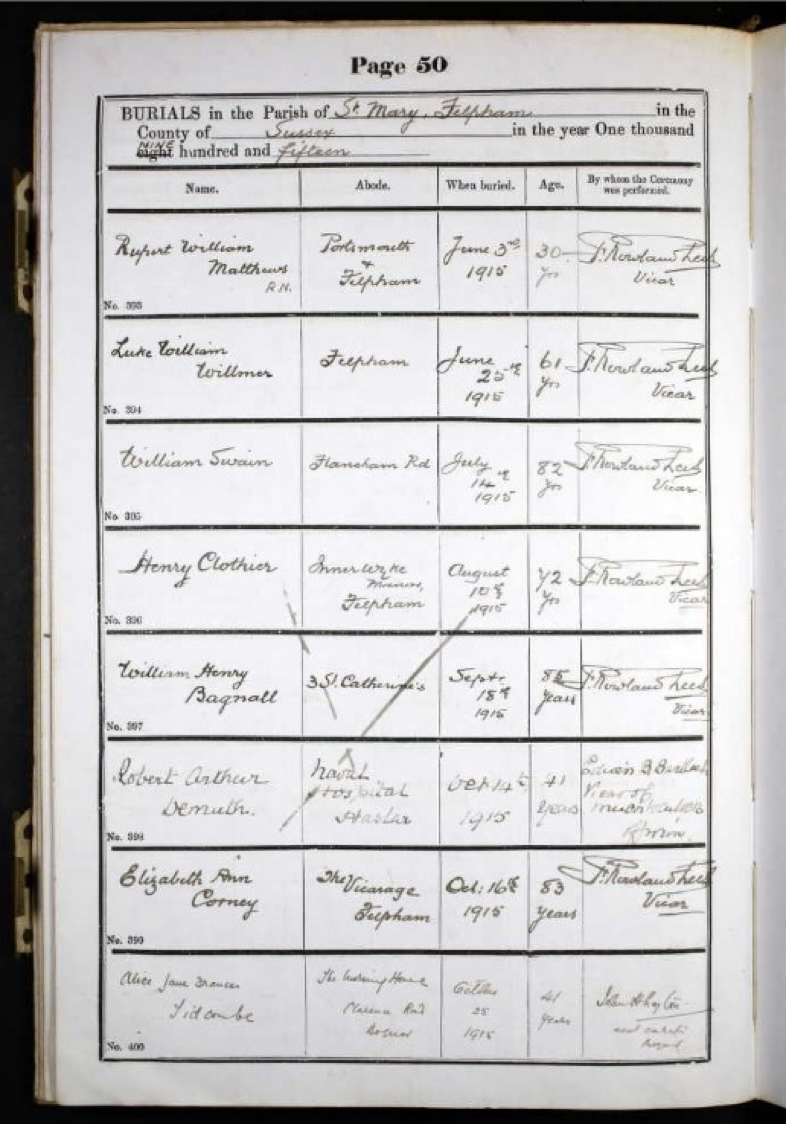 Page 50
BURIALS in the Parish of St. Mary, Felpham in the
County of Sussex in the year One thousand
NINE
eight hundred and fifteen
Name. Abode. When buried. Age. By whom the Ceremony was performed.
Rupert William
Matthews
R.N.
No. 393
Portsmouth
&
Felpham
June 3rd
1915
30
yrs
F. Rowland Lees
Vicar
Luke William
Willmer
No. 394
Felpham
June
25th
1915
61
yrs
F. Rowland Lees
Vicar
William Swain
No. 395
Flansham Rd
July
14th
1915
82
yrs
F. Rowland Lees
Vicar
Henry Clothier
No. 396
Felpham
August
10th
1915
72
yrs
F. Rowland Lees
Vicar
William Henry
Bagnall
No. 397
3 St. Catherine's
Septr.
18th
1915
85
years
F. Rowland Lees
Vicar
Robert Arthur
Demuth.
No. 398
Naval
Hospital
Haslar
Oct 14th
1915
41
years
Vicar of
Elizabeth Ann
Corney
No. 399
The Vicarage
Felpham
Oct: 16th
1915
83
years
F. Rowland Lees
Vicar
Alice Jane Frances
Tidcombe
No. 400
The Nursing Home
Clarence Road
Bognor
October
25
1915
41
years
Bognor